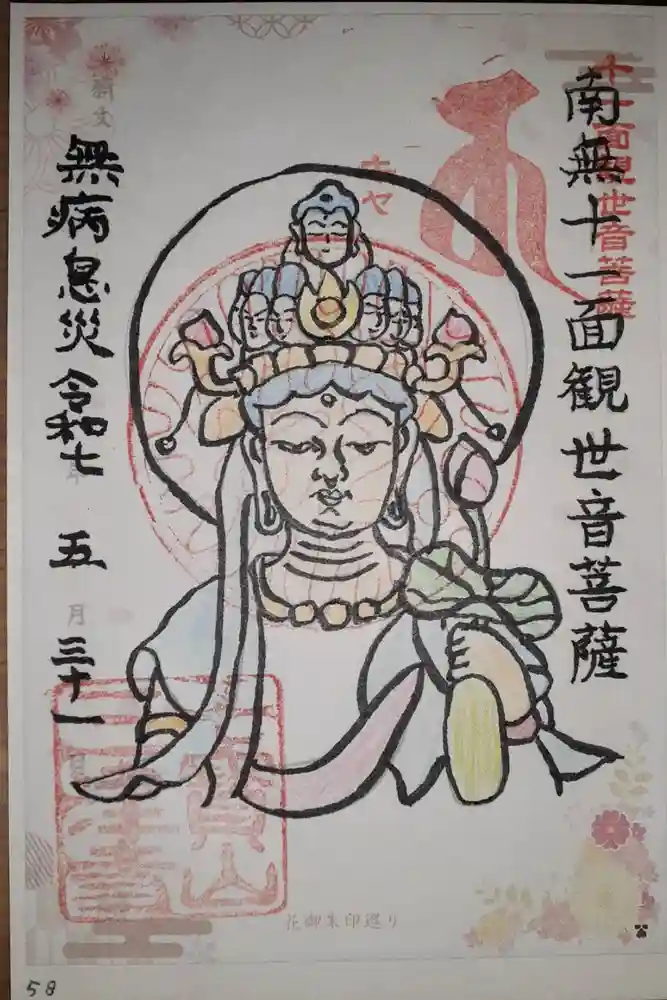 南無十一面観世音菩薩
十一面観世音菩薩
キャ
願文
無病息災 令和七年 五月三十一日
花御朱印巡り
58